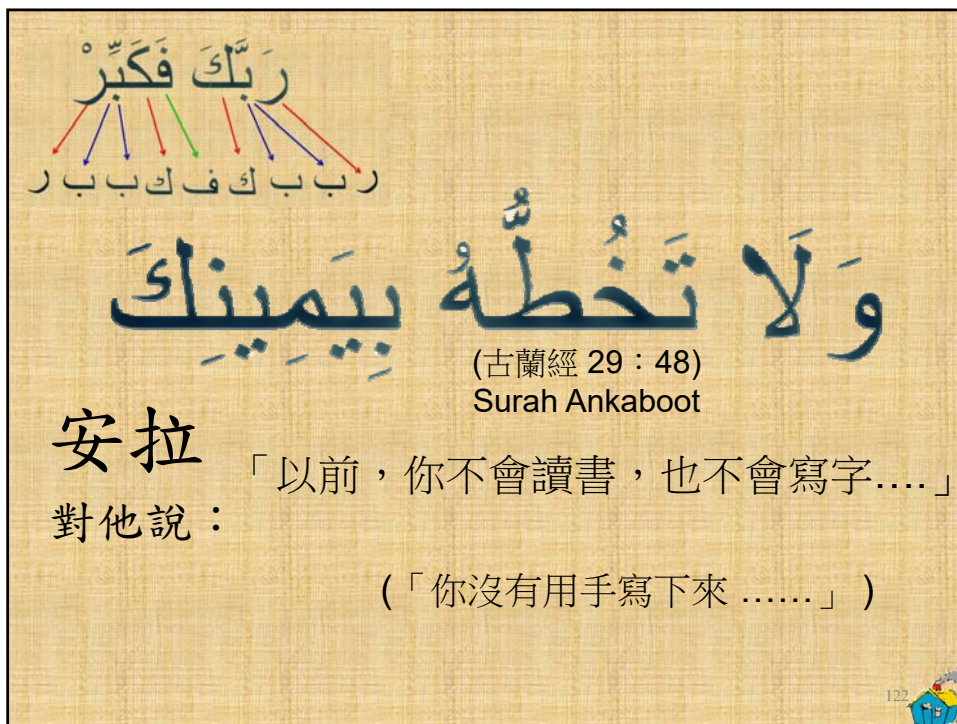 رَبَّكَ فَكَبِّرْ
ر ب ب ك ف ك ب ب ر
وَلَا تَخُطُّهُ بِيَمِينِكَ
(古蘭經 29：48)
Surah Ankaboot
安拉
對他說：
「以前，你不會讀書，也不會寫字….」
(「你沒有用手寫下來 ……」)
122